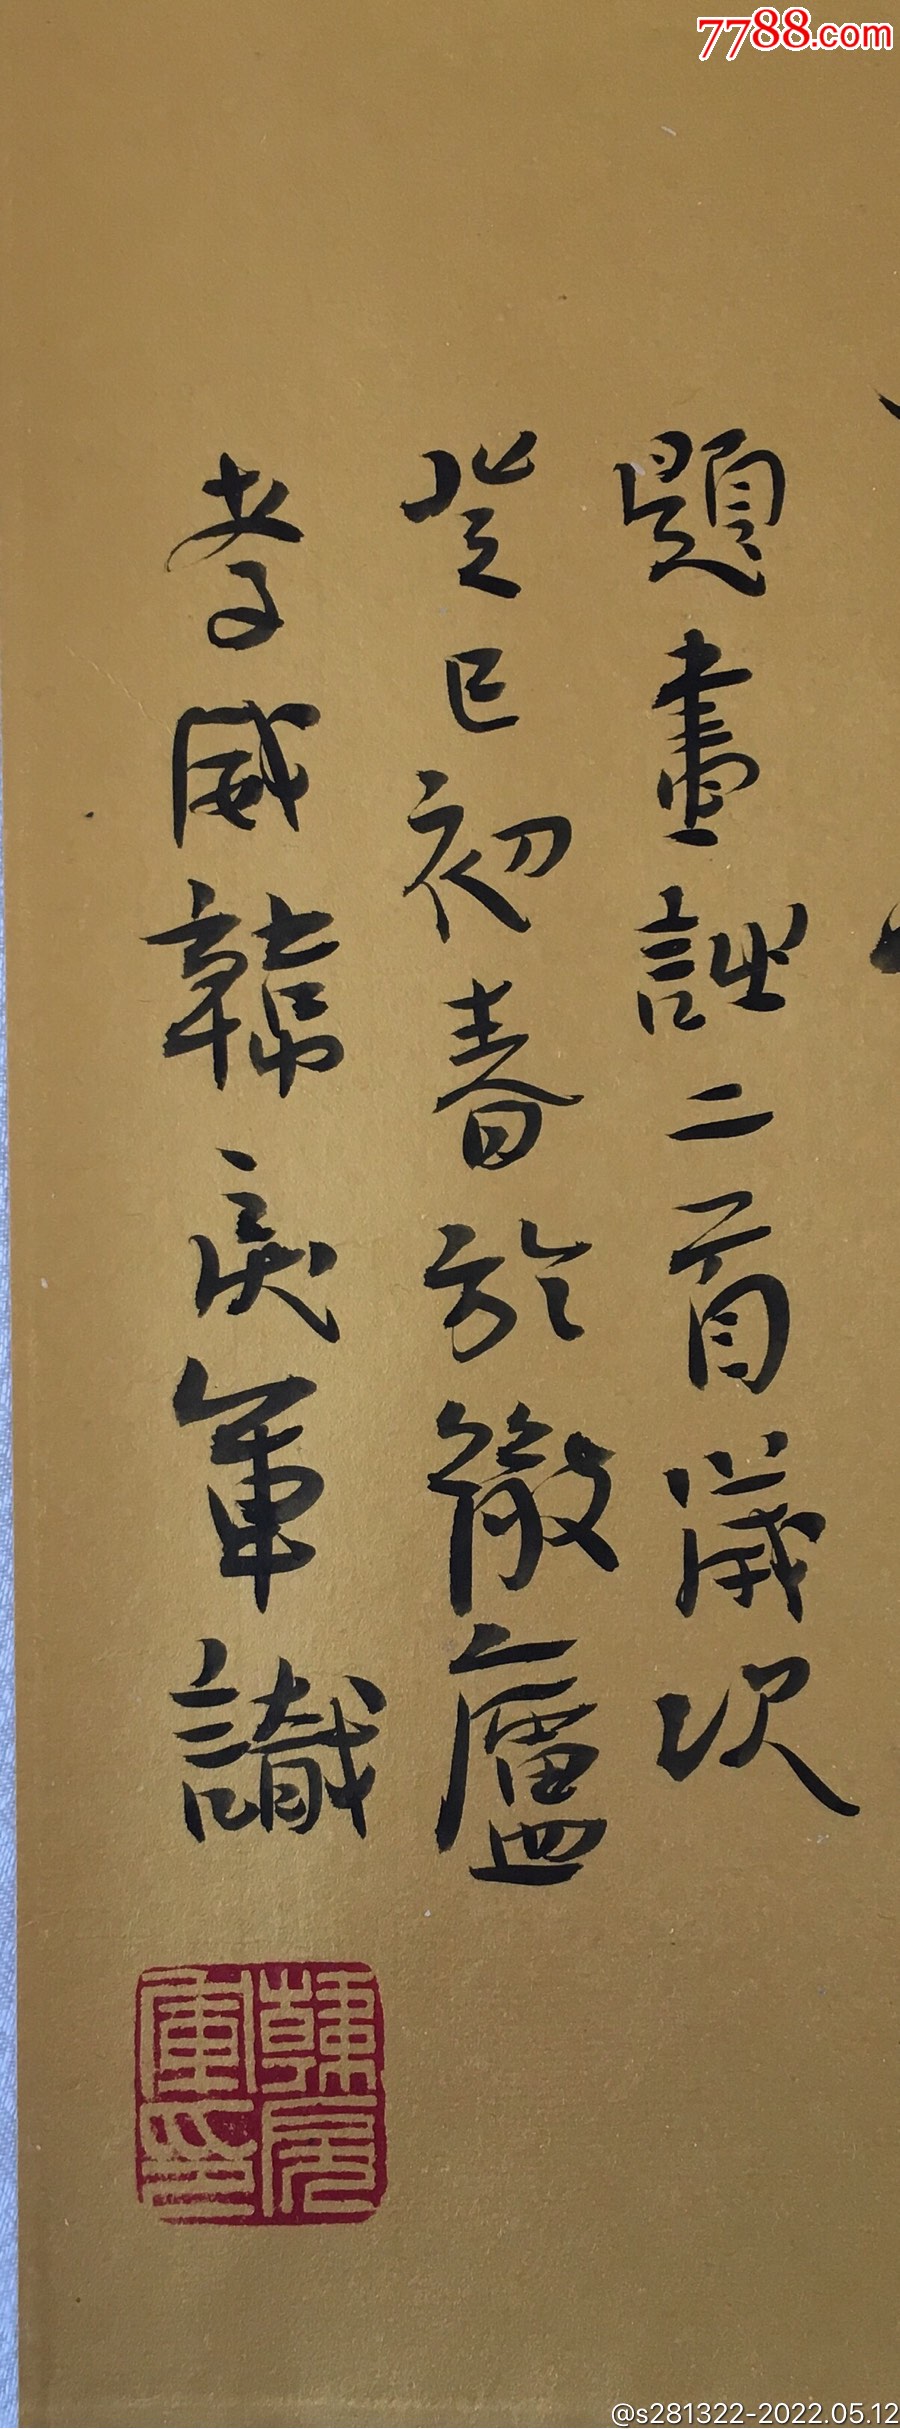 題畫詩二首歲次
癸巳初春於徹廬
孝威韓軍識
韓
軍印
7788.com
@s281322-2022.05.12